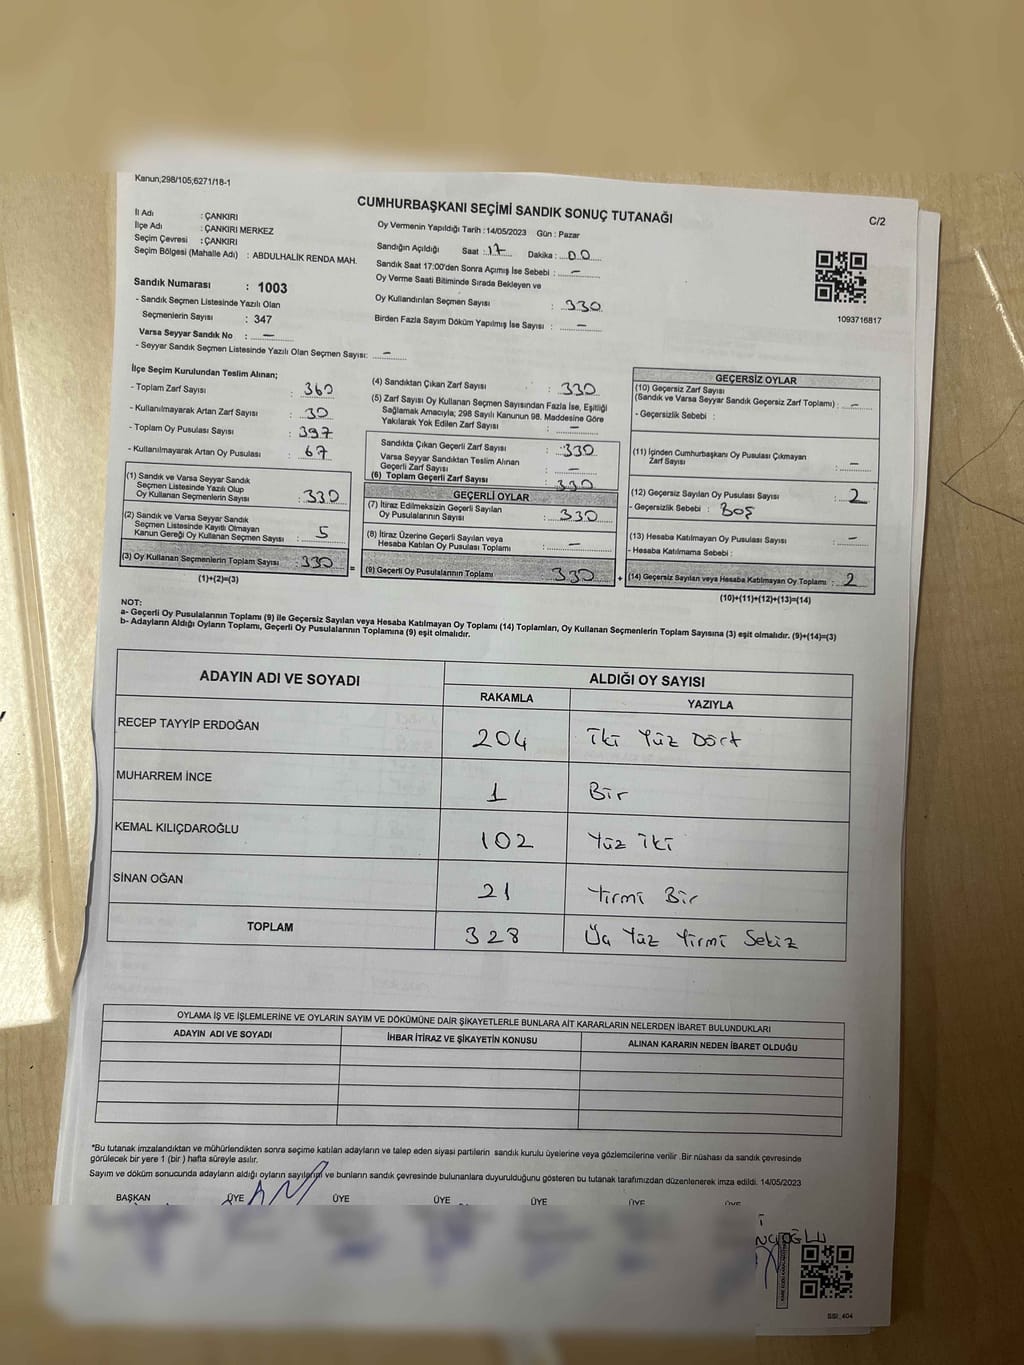 Kanun,298/105;6271/18-1
CUMHURBAŞKANI SEÇİMİ SANDIK SONUÇ TUTANAĞI
C/2
İl Adı : ÇANKIRI
İlçe Adı : ÇANKIRI MERKEZ
Seçim Çevresi : ÇANKIRI
Seçim Bölgesi (Mahalle Adı) : ABDULHALİK RENDA MAH.
Sandık Numarası : 1003
- Sandık Seçmen Listesinde Yazılı Olan
Seçmenlerin Sayısı : 347
Varsa Seyyar Sandık No : —
- Seyyar Sandık Seçmen Listesinde Yazılı Olan Seçmen Sayısı: —
Oy Vermenin Yapıldığı Tarih :14/05/2023 Gün : Pazar
Sandığın Açıldığı Saat : 17 Dakika : 00
Sandık Saat 17:00'den Sonra Açımış İse Sebebi : —
Oy Verme Saati Bitiminde Sırada Bekleyen ve
Oy Kullandırılan Seçmen Sayısı : 330
Birden Fazla Sayım Döküm Yapılmış İse Sayısı : —
1093716817
İlçe Seçim Kurulundan Teslim Alınan;
- Toplam Zarf Sayısı : 360
- Kullanılmayarak Artan Zarf Sayısı : 30
- Toplam Oy Pusulası Sayısı : 397
- Kullanılmayarak Artan Oy Pusulası : 67
(1) Sandık ve Varsa Seyyar Sandık
Seçmen Listesinde Yazılı Olup
Oy Kullanan Seçmenlerin Sayısı : 330
(2) Sandık ve Varsa Seyyar Sandık
Seçmen Listesinde Kayıtlı Olmayan
Kanun Gereği Oy Kullanan Seçmen Sayısı : 5
(3) Oy Kullanan Seçmenlerin Toplam Sayısı : 330
(1)+(2)=(3)
(4) Sandıktan Çıkan Zarf Sayısı : 330
(5) Zarf Sayısı Oy Kullanan Seçmen Sayısından Fazla İse, Eşitliği
Sağlamak Amacıyla; 298 Sayılı Kanunun 98. Maddesine Göre
Yakılarak Yok Edilen Zarf Sayısı : —
Sandıkta Çıkan Geçerli Zarf Sayısı : 330
Varsa Seyyar Sandıktan Teslim Alınan
Geçerli Zarf Sayısı : —
(6) Toplam Geçerli Zarf Sayısı : 330
GEÇERLİ OYLAR
(7) İtiraz Edilmeksizin Geçerli Sayılan
Oy Pusulalarının Sayısı : 330
(8) İtiraz Üzerine Geçerli Sayılan veya
Hesaba Katılan Oy Pusulası Toplamı : —
= (9) Geçerli Oy Pusulalarının Toplamı 330 +
GEÇERSİZ OYLAR
(10) Geçersiz Zarf Sayısı
(Sandık ve Varsa Seyyar Sandık Geçersiz Zarf Toplamı) : —
- Geçersizlik Sebebi :
(11) İçinden Cumhurbaşkanı Oy Pusulası Çıkmayan
Zarf Sayısı : —
(12) Geçersiz Sayılan Oy Pusulası Sayısı : 2
- Geçersizlik Sebebi : Boş
(13) Hesaba Katılmayan Oy Pusulası Sayısı : —
- Hesaba Katılmama Sebebi :
(14) Geçersiz Sayılan veya Hesaba Katılmayan Oy Toplamı : 2
(10)+(11)+(12)+(13)=(14)
NOT:
a- Geçerli Oy Pusulalarının Toplamı (9) ile Geçersiz Sayılan veya Hesaba Katılmayan Oy Toplamı (14) Toplamları, Oy Kullanan Seçmenlerin Toplam Sayısına (3) eşit olmalıdır. (9)+(14)=(3)
b- Adayların Aldığı Oyların Toplamı, Geçerli Oy Pusulalarının Toplamına (9) eşit olmalıdır.
ADAYIN ADI VE SOYADI ALDIĞI OY SAYISI
RAKAMLA YAZIYLA
RECEP TAYYİP ERDOĞAN 204 İki Yüz Dört
MUHARREM İNCE 1 Bir
KEMAL KILIÇDAROĞLU 102 Yüz İki
SİNAN OĞAN 21 Yirmi Bir
TOPLAM 328 Üç Yüz Yirmi Sekiz
OYLAMA İŞ VE İŞLEMLERİNE VE OYLARIN SAYIM VE DÖKÜMÜNE DAİR ŞİKAYETLERLE BUNLARA AİT KARARLARIN NELERDEN İBARET BULUNDUKLARI
ADAYIN ADI VE SOYADI İHBAR İTİRAZ VE ŞİKAYETİN KONUSU ALINAN KARARIN NEDEN İBARET OLDUĞU
*Bu tutanak imzalandıktan ve mühürlendikten sonra seçime katılan adayların ve talep eden siyasi partilerin sandık kurulu üyelerine veya gözlemcilerine verilir .Bir nüshası da sandık çevresinde
görülecek bir yere 1 (bir ) hafta süreyle asılır.
Sayım ve döküm sonucunda adayların aldığı oyların sayılarını ve bunların sandık çevresinde bulunanlara duyurulduğunu gösteren bu tutanak tarafımızdan düzenlenerek imza edildi. 14/05/2023
BAŞKAN ÜYE ÜYE ÜYE ÜYE ÜYE ÜYE
SSI_404